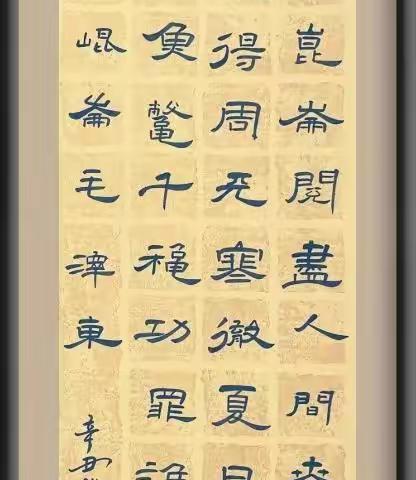 崑崙閱盡人間春
得周天寒徹夏日
魚鼈千穐功罪誰
崐崙毛澤東
辛丑